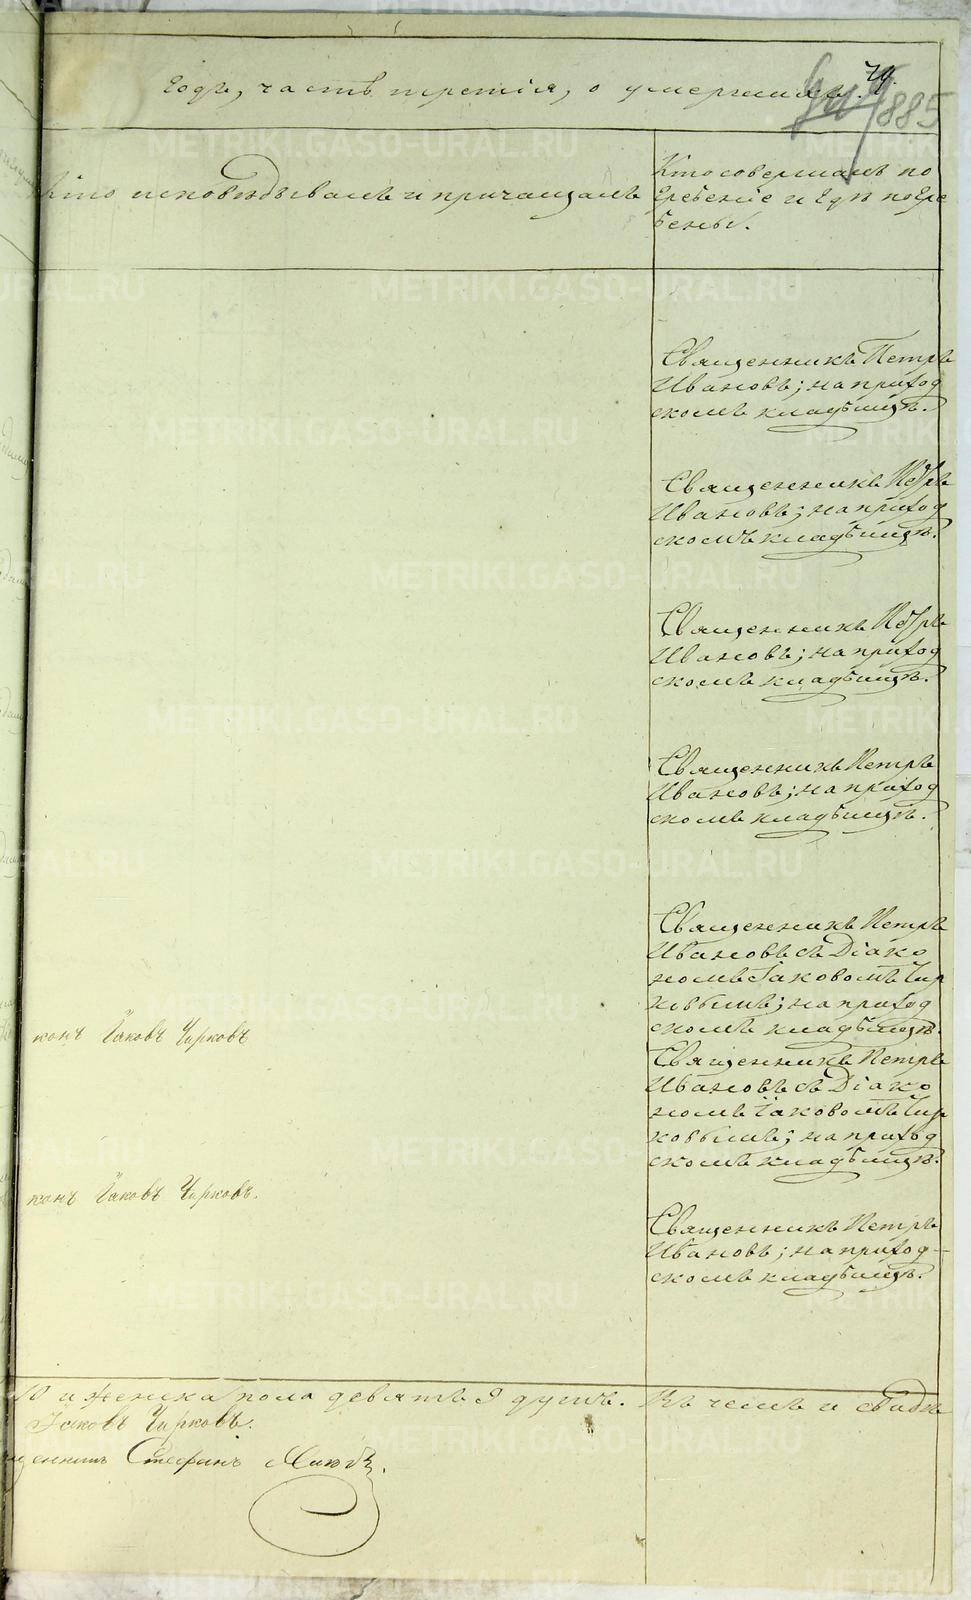 79.
885
Годъ, часть третія, о умершихъ.
Кто исповѣдывалъ и причащалъ
Кто совершалъ по
гребеніе и гдѣ погре
бены.
Священникъ Петръ
Ивановъ; на приход
скомъ кладбищѣ.
Священникъ Петръ
Ивановъ; на приход
скомъ кладбищѣ.
Священникъ Петръ
Ивановъ; на приход
скомъ кладбищѣ.
Священникъ Петръ
Ивановъ; на приход
скомъ кладбищѣ.
Священникъ Петръ
Ивановъ съ Діако
номъ Іаковомъ Чир
ковымъ; на приход
скомъ кладбищѣ.
конъ Іаковъ Чирковъ
Священникъ Петръ
Ивановъ съ Діако
номъ Іаковомъ Чир
ковымъ; на приход
скомъ кладбищѣ.
конъ Іаковъ Чирковъ.
Священникъ Петръ
Ивановъ; на приход-
скомъ кладбищѣ.
и женска пола девять 9 душъ. Въ чемъ и свидѣ
Іаковъ Чирковъ.
щенникъ Стефанъ
METRIKI.GASO-URAL.RU